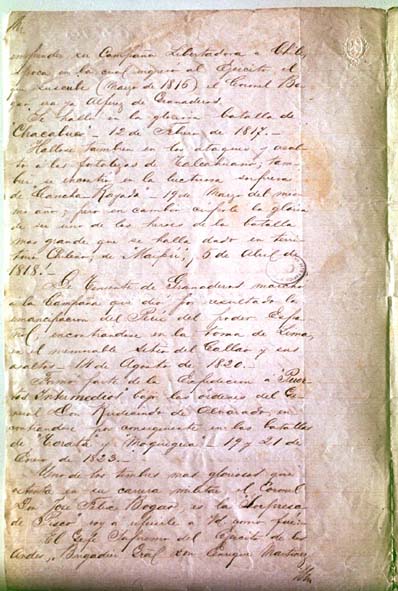 emprender su Campaña Libertadora a Chile,
época en la cual ingresó al Ejército el
que suscribe (Marzo de 1816) el Coronel Bo-
gado era ya Alferez de Granaderos.
Se halló en la gloriosa batalla de
"Chacabuco" - 12 de Febrero de 1817.-
Hallóse tambien en los ataques y asal-
to a las fortalezas de Talcahuano, tam-
bien se encontró en la luctuosa sorpresa
de "Cancha Rayada" - 19 de Marzo del mis-
mo año; pero en cambio cúpole la gloria
de ser uno de los heroes de la batalla
mas grande que se halla dado en terri-
torio Chileno, de Maipú, 5 de Abril de
1818.-
De Teniente de Granaderos marchó
a la Campaña que dió por resultado la
emancipacion del Perú del poder Espa-
ñol, encontrandose en la toma de Lima,
en el memorable Sitio del Callao y sus
asaltos - 14 de Agosto de 1820.-
Formó parte de la Expedicion a Puer-
tos Intermedios bajo las órdenes del Ge-
neral Don Rudesindo de Alvarado, en-
contrandose por consiguiente en las batallas
de "Torata" y "Moquegua" 19 y 21 de
Enero de 1823.-
Uno de los timbres mas gloriosos que
ostenta en su carrera militar el Coronel
Don José Felix Bogado, es la "Sorpresa
de Pisco" voy a referirle a Vd. como fué:
El Gefe Supremo del Ejército de los
Andes, Brigadier Gral Don Enrique Martinez